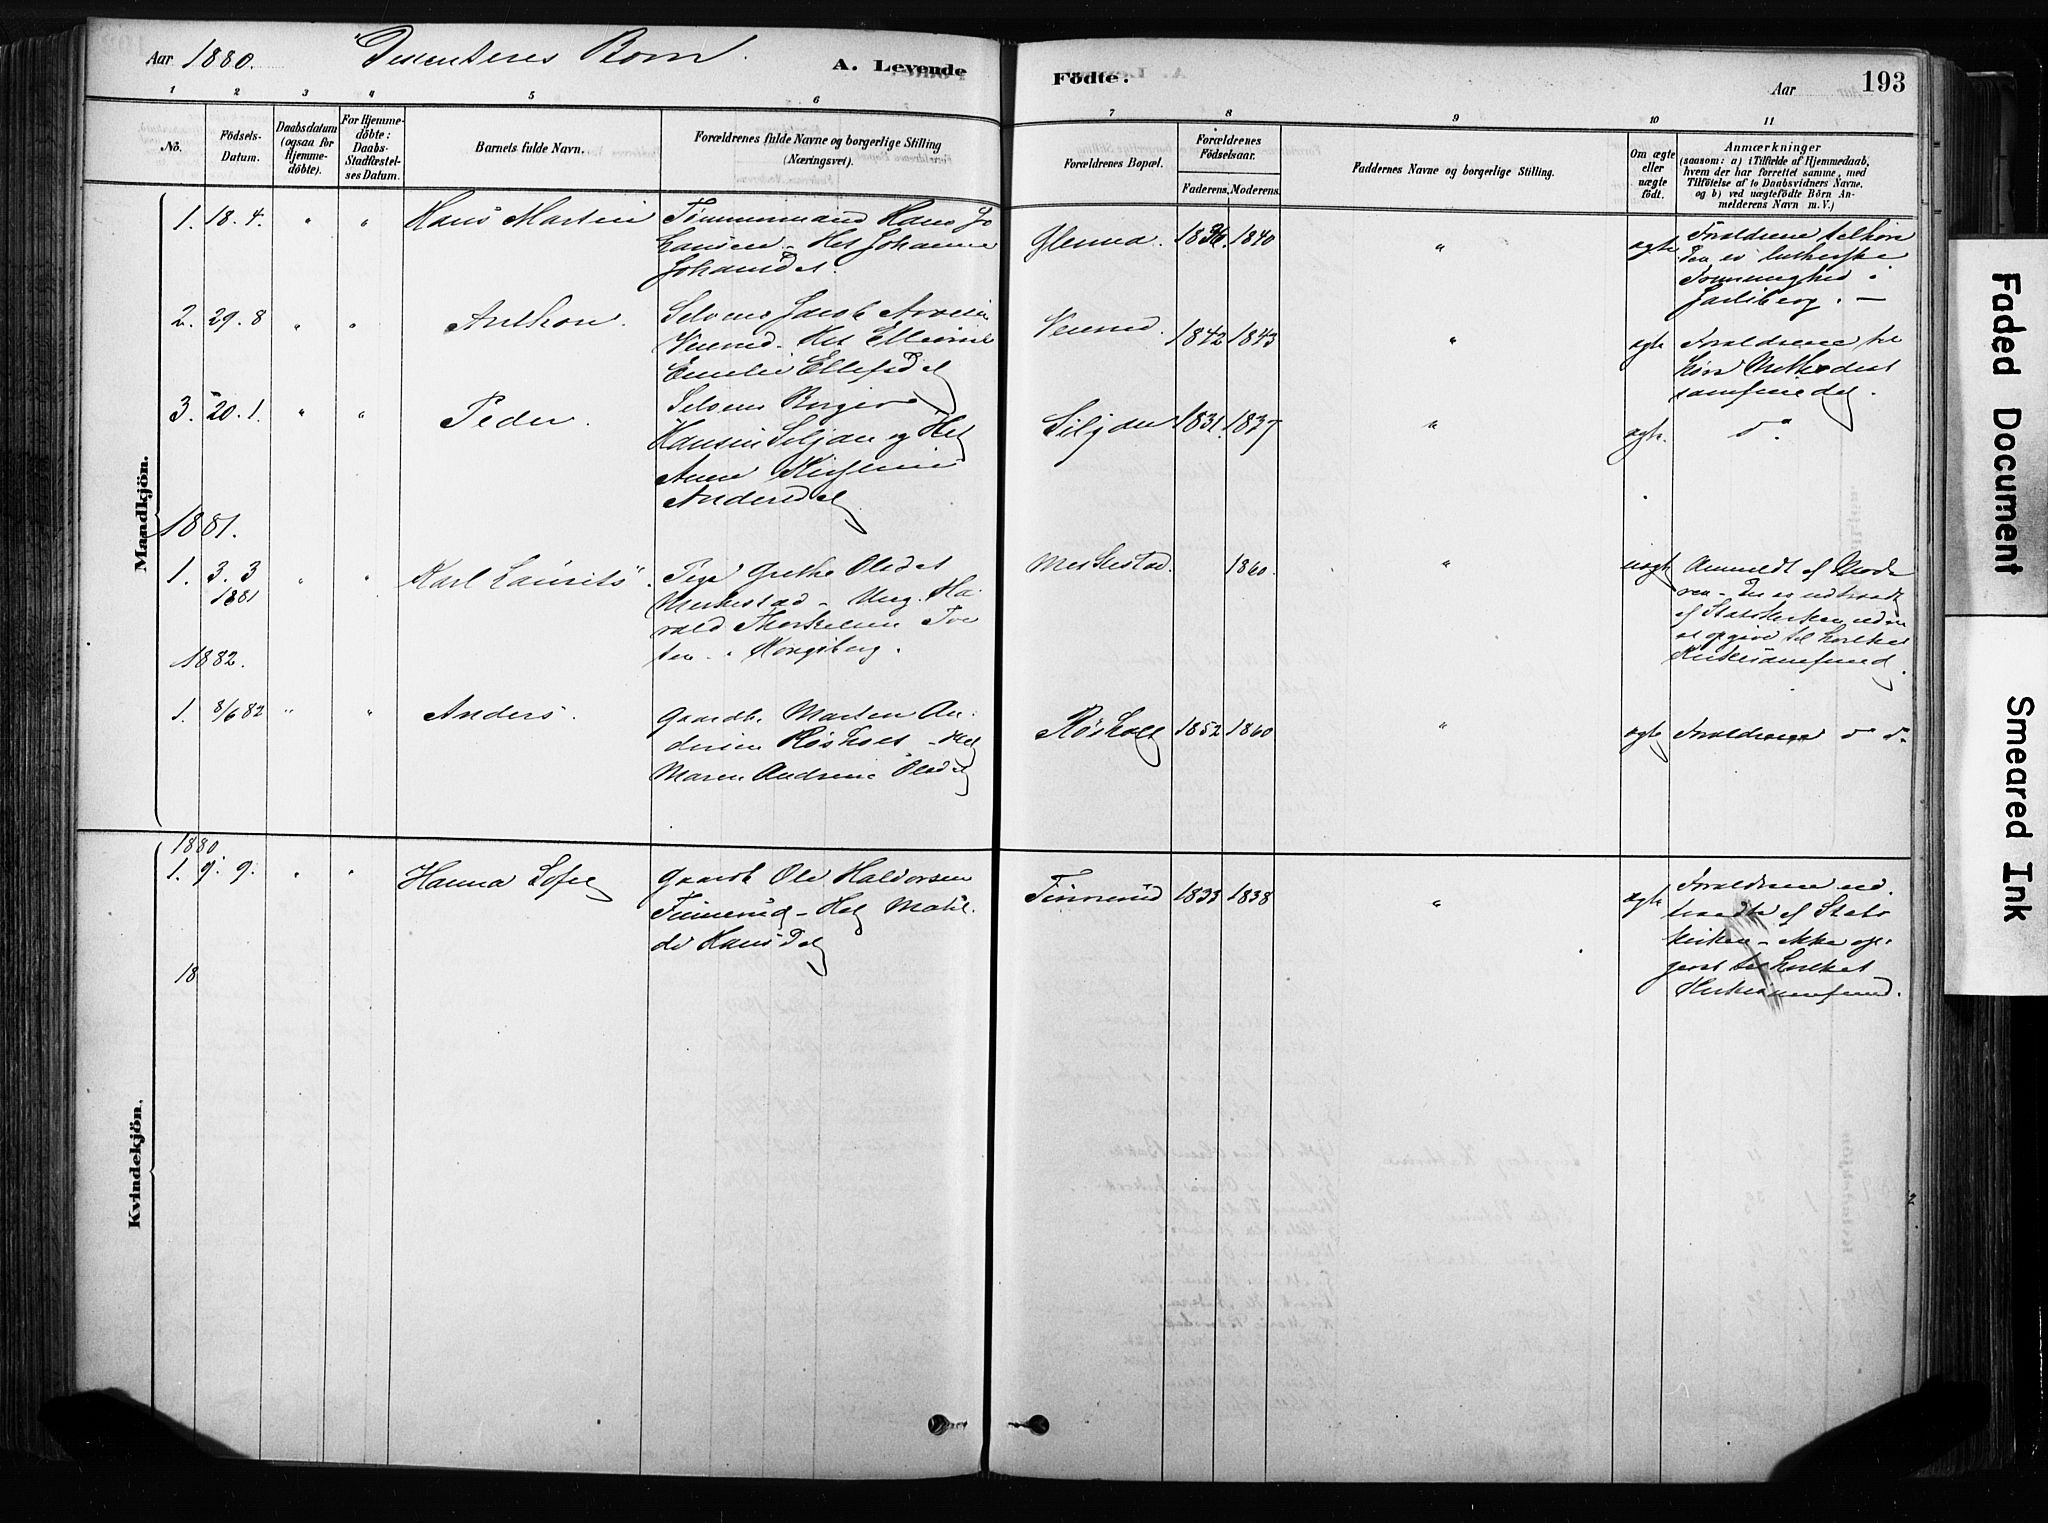 Aar 1880. Dissenteres Børn.
A. Levende Födte.
Aar
193
1 2 3 4 5 6 7 8 9 10 11
No.
Födsels-Datum.
Daabsdatum (ogsaa for Hjemme-döbte).
For Hjemme-döbte: Daabs-Stadfæstel-ses Datum.
Barnets fulde Navn.
Forældrenes fulde Navne og borgerlige Stilling (Næringsvei).
Forældrenes Bopæl.
Forældrenes Födselsaar.
Faderens. Moderens.
Faddernes Navne og borgerlige Stilling.
Om ægte eller uægte födt.
Anmærkninger
(saasom: a) i Tilfælde af Hjemmedaab,
hvem der har forrettet samme, med
Tilföielse af to Daabsvidners Navne,
og b) ved uægtefödte Börn An-
melderens Navn m. V.)
Mandkjön.
1. 18. 4. " " Hans Martin
Tømmermand Hans Jo
hansen - Het Johanne
Johansdt.
Glenna. 1836. 1840 " ægte
Forældrene tilhøre
den ev lutherske
Frimenighed i
Jarlsberg. -
2. 29. 8 " " Anthon.
Selveier Jacob
Veierud. Het
Emelie Ellefsdt
Veierud. 1842 1843 " ægte
Forældrene til
hører Methodist
samfundet.
3. 20. 1. " " Peder.
Selveier Birger
Hansen Siljan og Het
Anne
Andersdt
Siljan 1831. 1837 " ægte. do
1881.
1. 3. 3 1881 " " Karl Laurits
Pige Grethe Olsdt
Merkestad - Ung. Ha-
rald Thorkelsen
Kongsberg.
Merkestad 1860. " uægte
Anmeldt af Mode
ren - Der er udtraadt
af Statskirken uden
at opgive til hvilket
Kirkesamfund.
1882.
1. 8/6 82 " " Anders.
Gaardb. Morten An-
dersen Røsholt - Het
Maren Andrine Olsdt
Røsholt 1852 1860 " ægte Forældrene do do
Kvindekjön.
1880
1. 9. 9. " " Hanna Sofie
Gaardb Ole Halvorsen
Finnerud - Het Mathil
de Hansdt
Finnerud 1833 1838 " ægte
Forældrene ud-
traadte af Stats
kirken - ikke op-
givet til hvilket
Kirkesamfund.
18
Faded Document
Smeared Ink